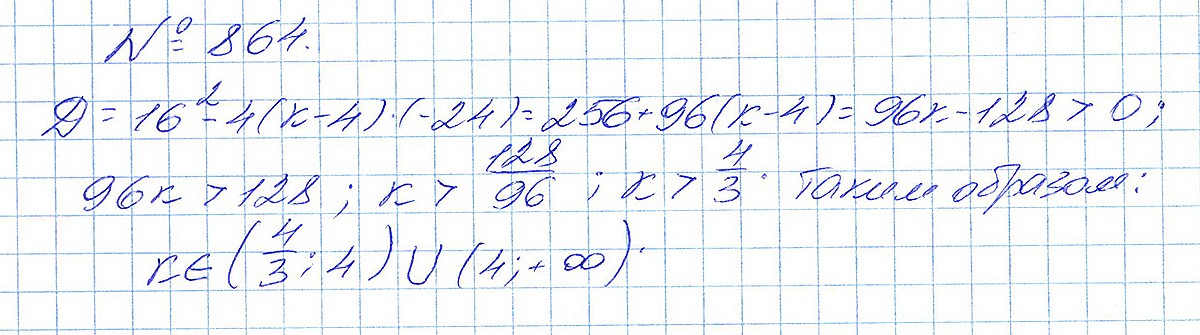 № 864.
D = 16² - 4(к-4)·(-24) = 256+96(к-4) = 96к-128 > 0;
96к > 128; к > 128/96; к > 4/3. Таким образом:
к ∈ (4/3; 4) ∪ (4; +∞).